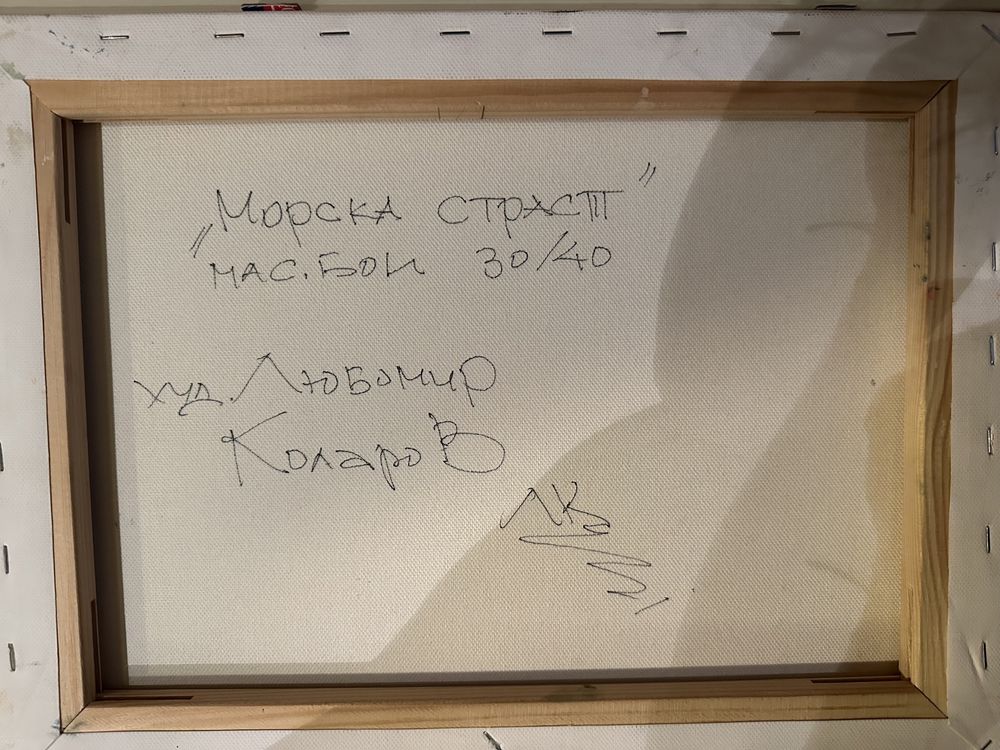 „Морска страст"
мас. бои 30/40
худ. Любомир
Коларов
ЛК